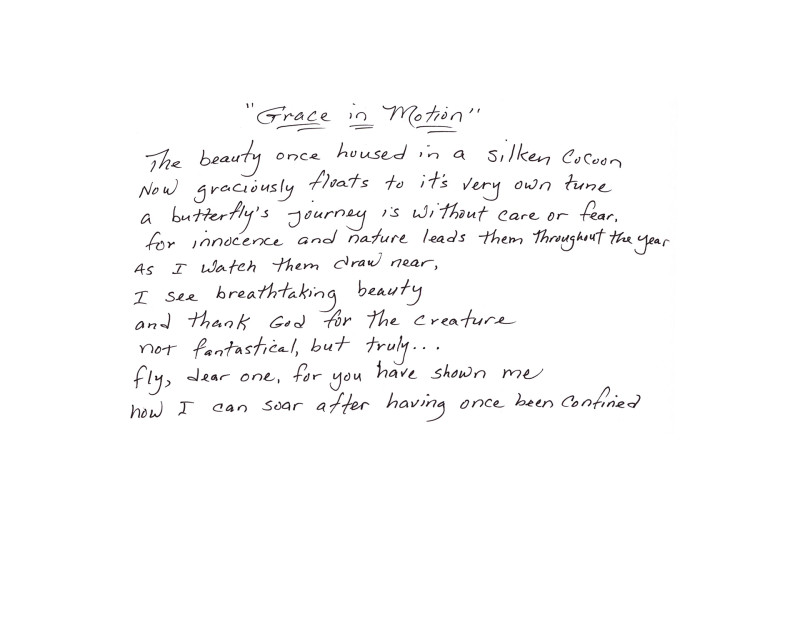 "Grace in Motion"
The beauty once housed in a silken cocoon
Now graciously floats to it's very own tune
a butterfly's journey is without care or fear,
for innocence and nature leads them throughout the year
As I watch them draw near,
I see breathtaking beauty
and thank God for the creature
not fantastical, but truly...
fly, dear one, for you have shown me
how I can soar after having once been confined